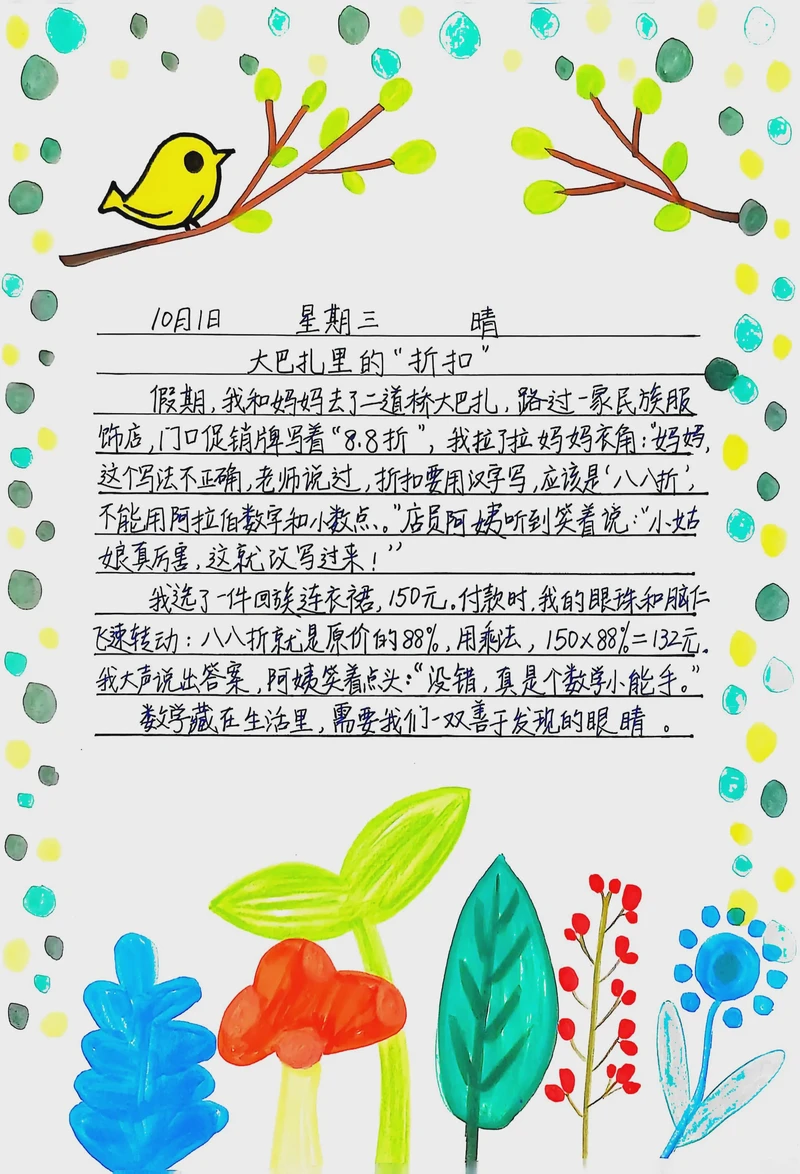 10月1日 星期三 晴
大巴扎里的“折扣”
假期,我和妈妈去了二道桥大巴扎,路过一家民族服
饰店,门口促销牌写着“8.8折”,我拉了拉妈妈衣角:“妈妈,
这个写法不正确,老师说过,折扣要用汉字写,应该是‘八八折’,
不能用阿拉伯数字和小数点。”店员阿姨听到笑着说:“小姑
娘真厉害,这就改写过来!”
我选了一件回族连衣裙,150元。付款时,我的眼珠和脑仁
飞速转动:八八折就是原价的88%,用乘法,150×88%=132元。
我大声说出答案,阿姨笑着点头:“没错,真是个数学小能手。”
数学藏在生活里,需要我们一双善于发现的眼睛。